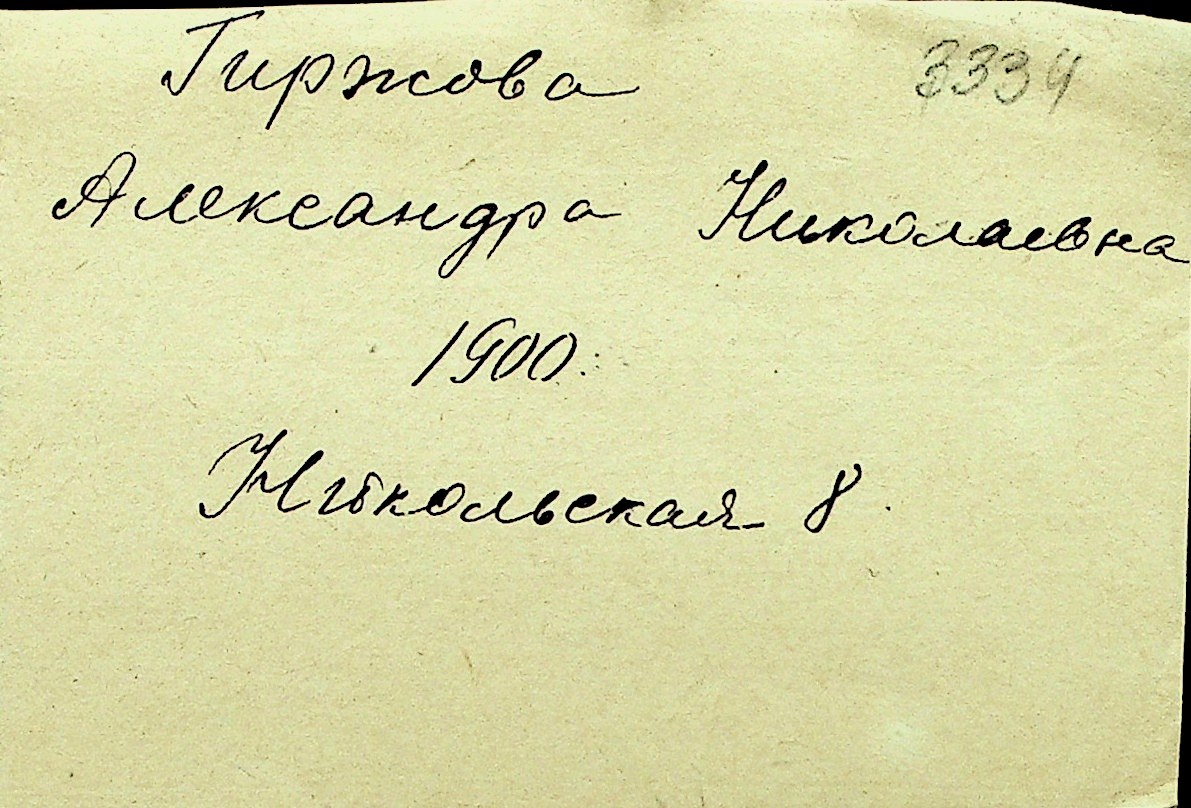 Гиржова 3334
Александра Николаевна
1900.
Никольская 8